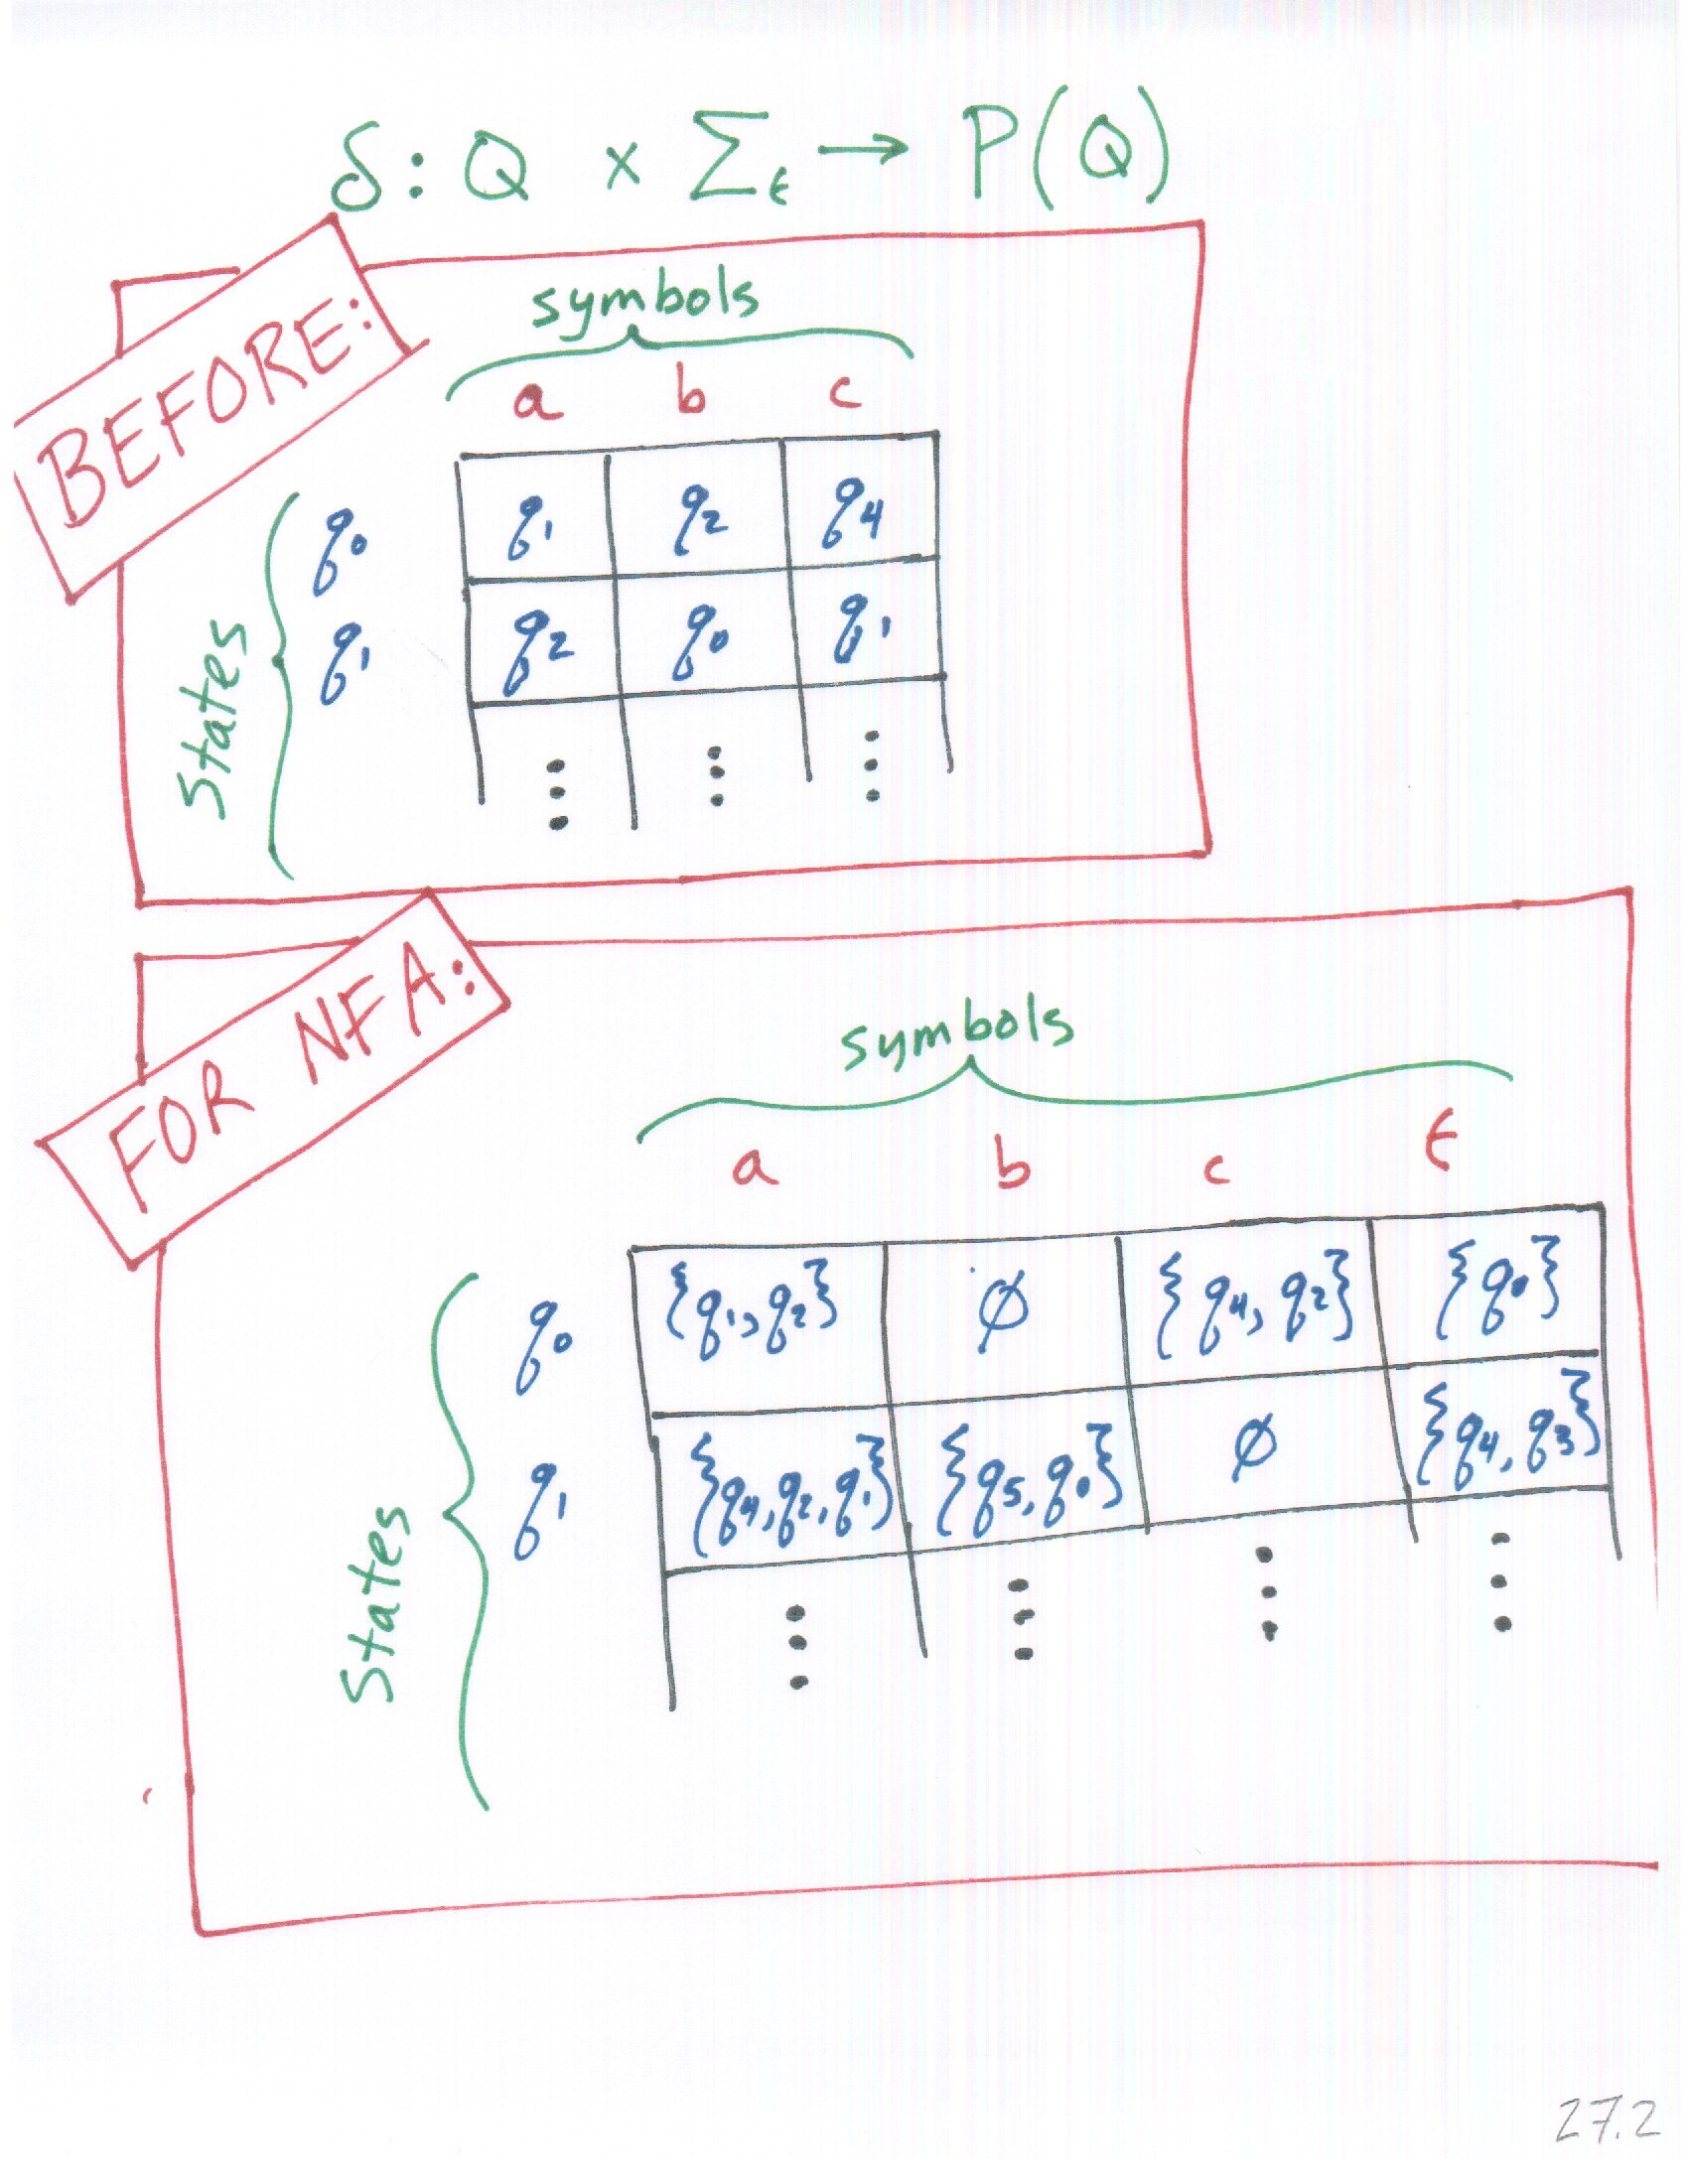 δ: Q × Σ_ϵ → P(Q)
BEFORE:
symbols
a b c
States
q₀ q₁ q₂ q₄
q₁ q₂ q₀ q₁
⋮ ⋮ ⋮
FOR NFA:
symbols
a b c ϵ
States
q₀ {q₁, q₂} ∅ {q₄, q₂} {q₀}
q₁ {q₄, q₂, q₁} {q₅, q₀} ∅ {q₄, q₃}
⋮ ⋮ ⋮ ⋮
27.2